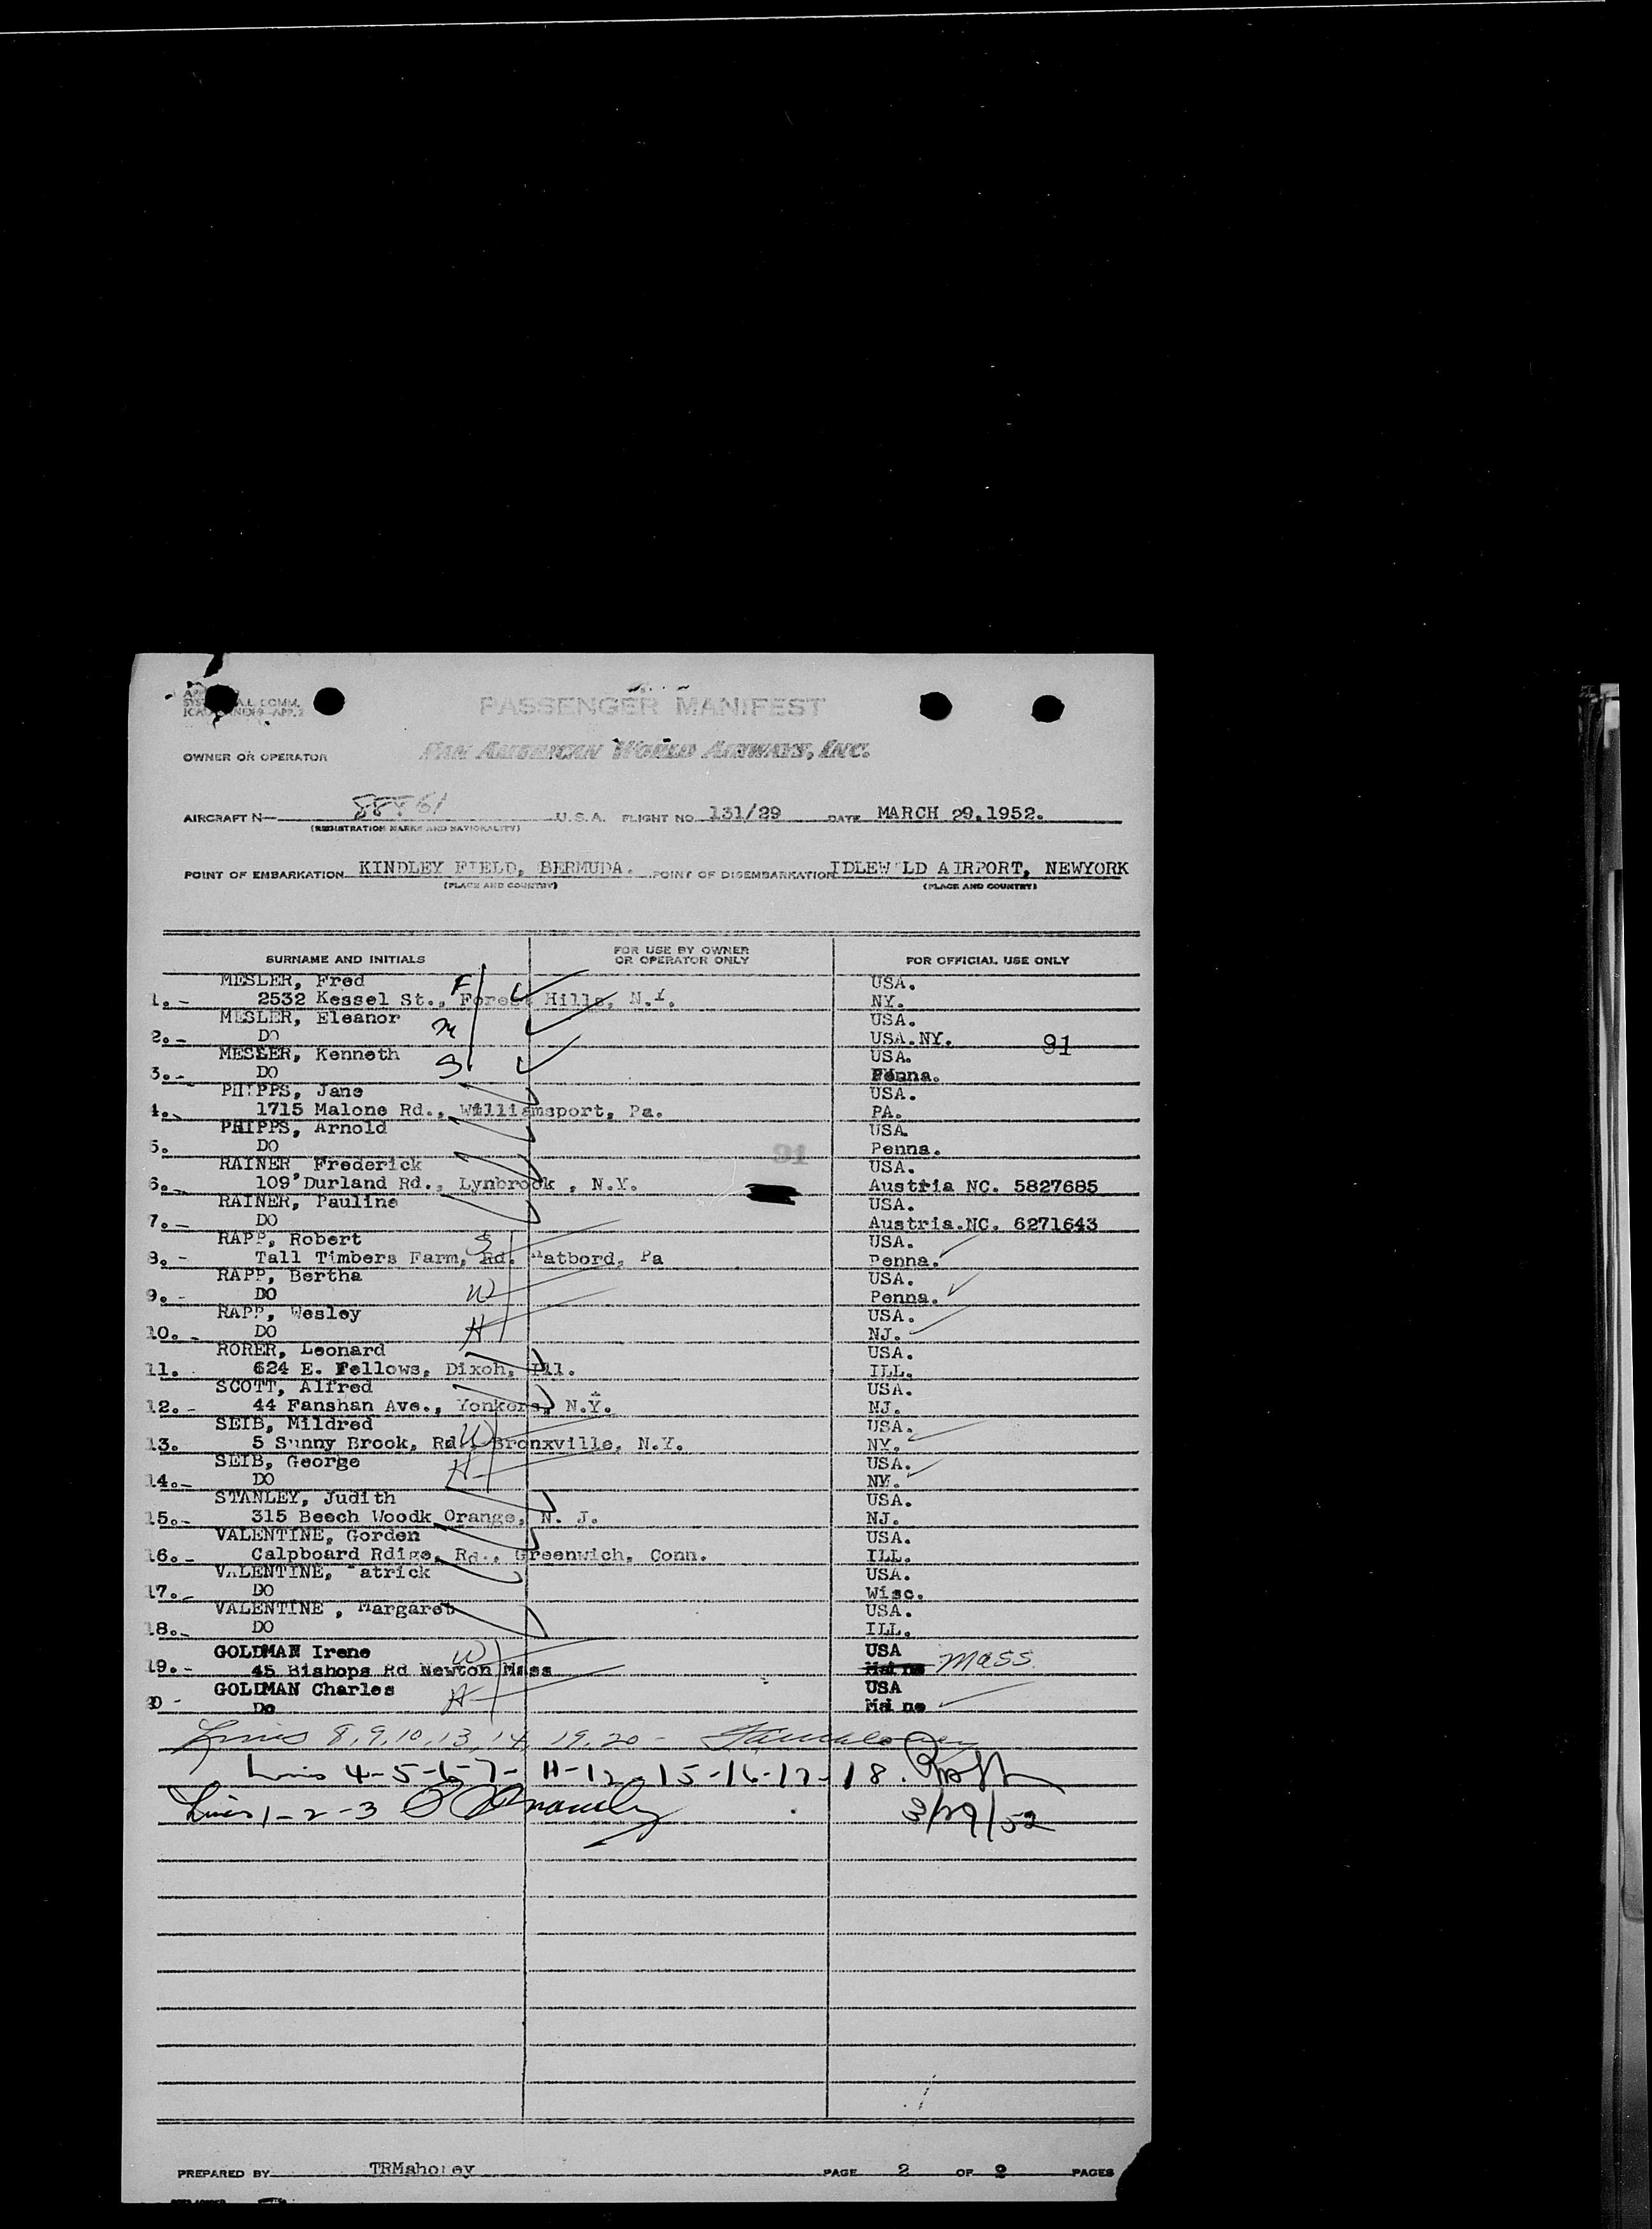 PASSENGER MANIFEST
OWNER OR OPERATOR PAN AMERICAN WORLD AIRWAYS, INC.
AIRCRAFT N— U.S.A. FLIGHT NO. 131/29 DATE MARCH 29.1952.
(REGISTRATION MARKS AND NATIONALITY)
POINT OF EMBARKATION KINDLEY FIELD, BERMUDA. POINT OF DISEMBARKATION IDLEW LD AIRPORT, NEWYORK
(PLACE AND COUNTRY) (PLACE AND COUNTRY)
SURNAME AND INITIALS FOR USE BY OWNER OR OPERATOR ONLY FOR OFFICIAL USE ONLY
MESLER, Fred F USA.
1. - 2532 Kessel St., Forest Hills, N.Y. NY.
MESLER, Eleanor M USA.
2. - DO USA.NY. 91
MESLER, Kenneth S USA.
3. - DO Penna.
PHIPPS, Jane USA.
4. 1715 Malone Rd., Williamsport, Pa. PA.
PHIPPS, Arnold USA.
5. DO Penna.
91
RAINER, Frederick USA.
6. - 109 Durland Rd., Lynbrook , N.Y. Austria NC. 5827685
RAINER, Pauline USA.
7. - DO Austria.NC. 6271643
RAPP, Robert S USA.
8. - Tall Timbers Farm, Rd. Hatbord, Pa Penna.
RAPP, Bertha USA.
9. - DO W Penna.
RAPP, Wesley USA.
10. - DO H NJ.
RORER, Leonard USA.
11. 624 E. Fellows, Dixon, Ill. ILL.
SCOTT, Alfred USA.
12. - 44 Fanshan Ave., Yonkers, N.Y. NJ.
SEIB, Mildred USA.
13. 5 Sunny Brook, Rd. W Bronxville, N.Y. NY.
SEIB, George USA.
14. - DO H NY.
STANLEY, Judith USA.
15. - 315 Beech Woodk Orange, N. J. NJ.
VALENTINE, Gorden USA.
16. - Calpboard Rdige, Rd., Greenwich, Conn. ILL.
VALENTINE, Patrick USA.
17. - DO Wisc.
VALENTINE , Margaret USA.
18. - DO ILL.
GOLDMAN Irene W USA
19. - 45 Bishops Rd Newton Mass Maine Mass
GOLDMAN Charles H USA
20 - Do Maine
Lines 8, 9, 10, 13, 14, 19, 20 -
Lines 4-5-6-7-11-12-15-16-17-18.
Lines 1-2-3 3/29/52
PREPARED BY TRMahoney PAGE 2 OF 2 PAGES